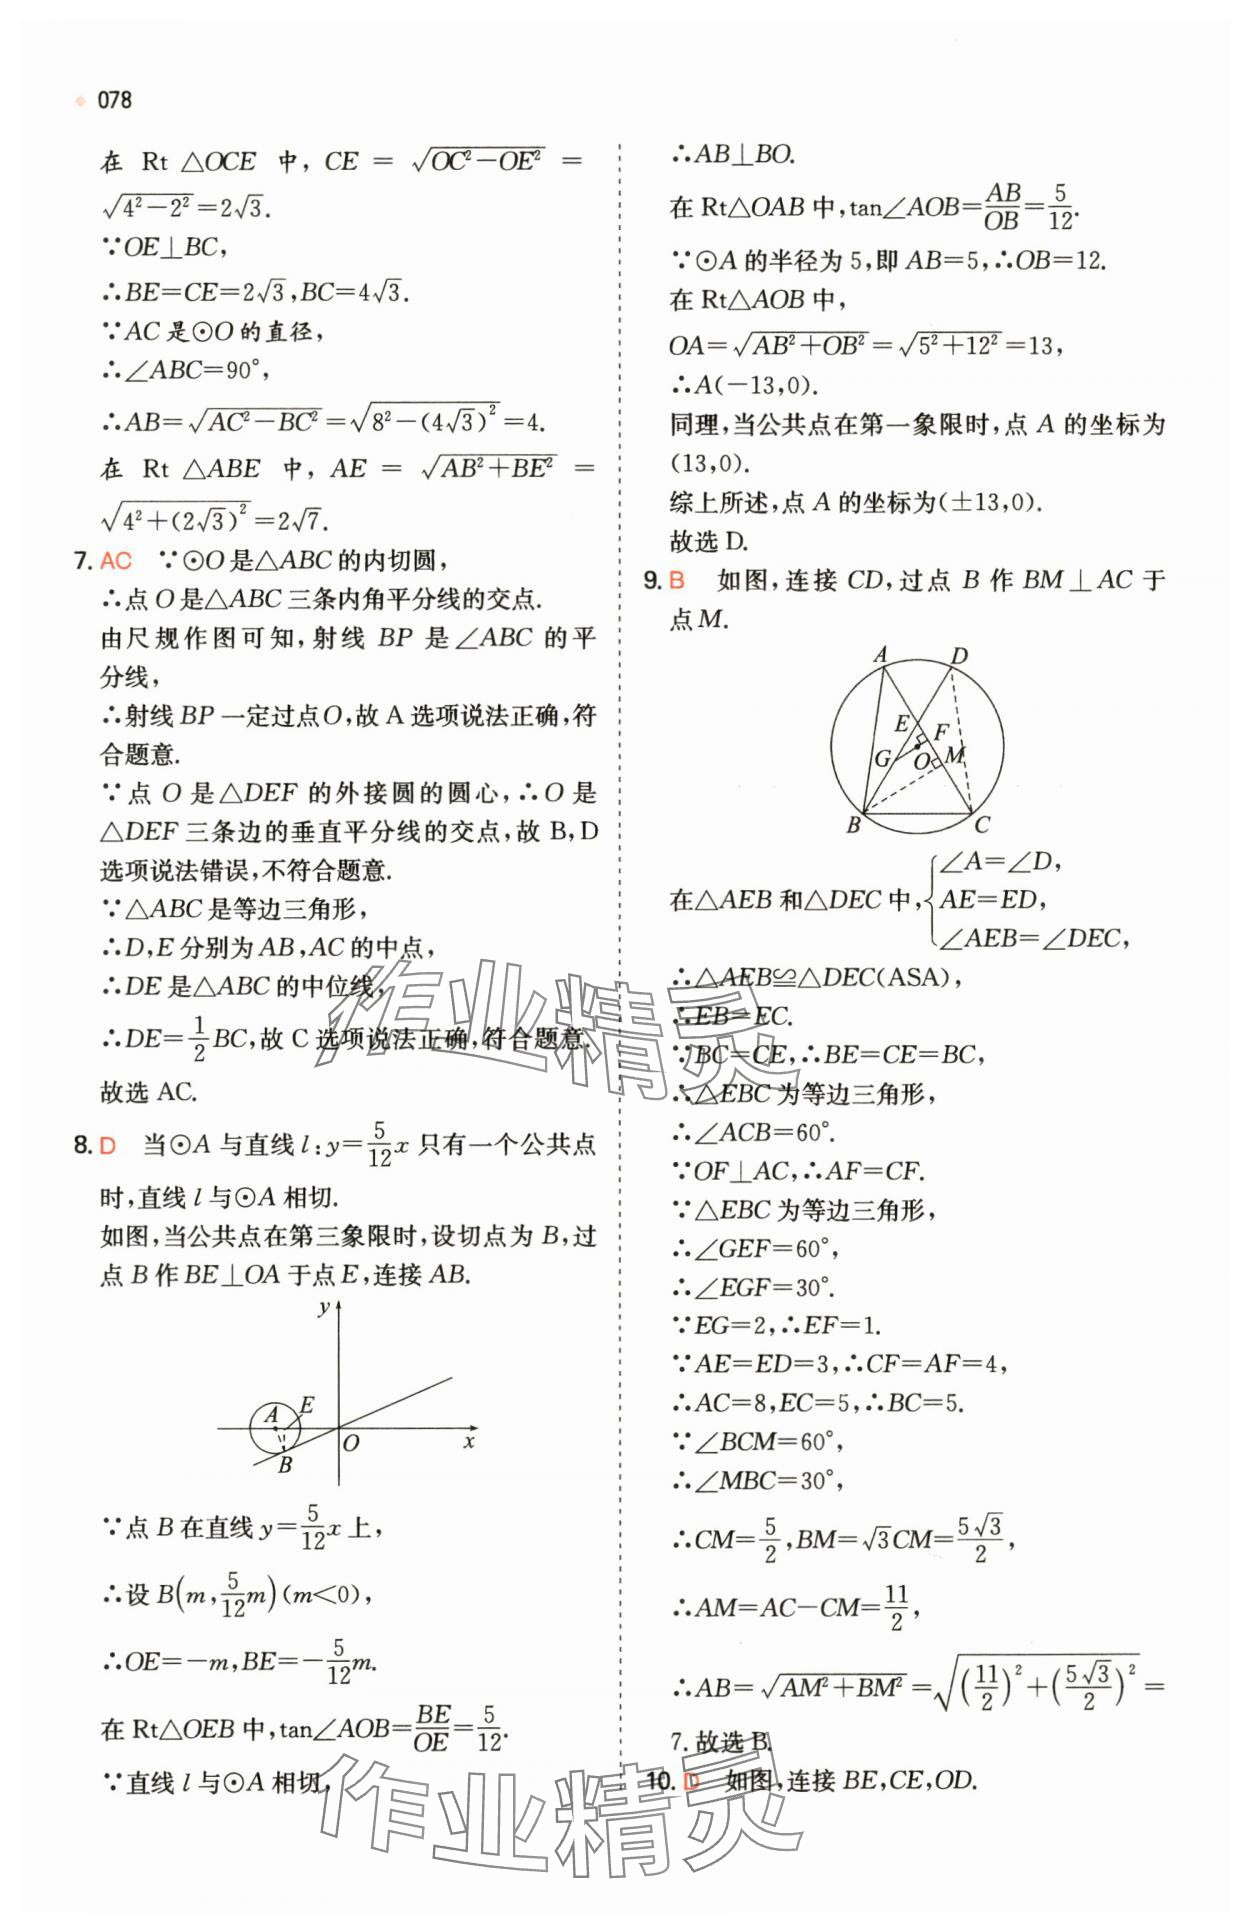 078
在 Rt △OCE 中, CE = √(OC²-OE²) =
√(4²-2²)=2√3.
∵OE⊥BC,
∴BE=CE=2√3,BC=4√3.
∵AC是⊙O的直径,
∴∠ABC=90°,
∴AB=√(AC²-BC²)=√(8²-(4√3)²)=4.
在 Rt △ABE 中, AE = √(AB²+BE²) =
√(4²+(2√3)²)=2√7.
7. AC ∵⊙O是△ABC的内切圆,
∴点O是△ABC三条内角平分线的交点.
由尺规作图可知,射线 BP 是∠ABC 的平
分线,
∴射线BP一定过点O,故A选项说法正确,符
合题意.
∵点 O 是△DEF 的外接圆的圆心,∴O 是
△DEF三条边的垂直平分线的交点,故B,D
选项说法错误,不符合题意.
∵△ABC是等边三角形,
∴D,E分别为AB,AC的中点,
∴DE是△ABC的中位线,
∴DE=1/2BC,故C选项说法正确,符合题意.
故选AC.
8. D 当⊙A与直线l:y=5/12x只有一个公共点
时,直线l与⊙A相切.
如图,当公共点在第三象限时,设切点为B,过
点B作BE⊥OA于点E,连接AB.
y
A E
O x
B
∵点B在直线y=5/12x上,
∴设B(m,5/12m)(m<0),
∴OE=-m,BE=-5/12m.
在Rt△OEB中,tan∠AOB=BE/OE=5/12.
∵直线l与⊙A相切,
∴AB⊥BO.
在Rt△OAB中,tan∠AOB=AB/OB=5/12.
∵⊙A的半径为5,即AB=5,∴OB=12.
在Rt△AOB中,
OA=√(AB²+OB²)=√(5²+12²)=13,
∴A(-13,0).
同理,当公共点在第一象限时,点 A 的坐标为
(13,0).
综上所述,点A的坐标为(±13,0).
故选D.
9. B 如图,连接 CD,过点 B 作 BM⊥AC于
点M.
A D
E F
G O M
B C
在△AEB和△DEC中,{∠A=∠D,
AE=ED,
∠AEB=∠DEC,
∴△AEB≌△DEC(ASA),
∴EB=EC.
∵BC=CE,∴BE=CE=BC,
∴△EBC为等边三角形,
∴∠ACB=60°.
∵OF⊥AC,∴AF=CF.
∵△EBC为等边三角形,
∴∠GEF=60°,
∴∠EGF=30°.
∵EG=2,∴EF=1.
∵AE=ED=3,∴CF=AF=4,
∴AC=8,EC=5,∴BC=5.
∵∠BCM=60°,
∴∠MBC=30°,
∴CM=5/2,BM=√3CM=5√3/2,
∴AM=AC-CM=11/2,
∴AB=√(AM²+BM²)=√((11/2)²+(5√3/2)²)=
7.故选B.
10. D 如图,连接BE,CE,OD.
作业精灵
作业精灵